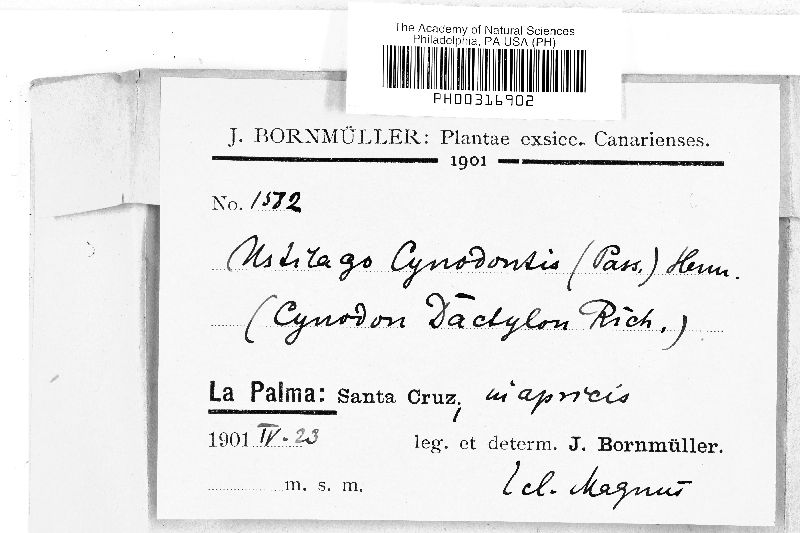 The Academy of Natural Sciences
Philadelphia, PA USA (PH)
PH00316902
J. BORNMÜLLER: Plantae exsicc. Canarienses.
1901
No. 1582
Ustilago Cynodontis (Pass.) Henn.
(Cynodon Dactylon Rich.)
La Palma: Santa Cruz, in apricis
1901 IV. 23 leg. et determ. J. Bornmüller.
m. s. m. Magnus